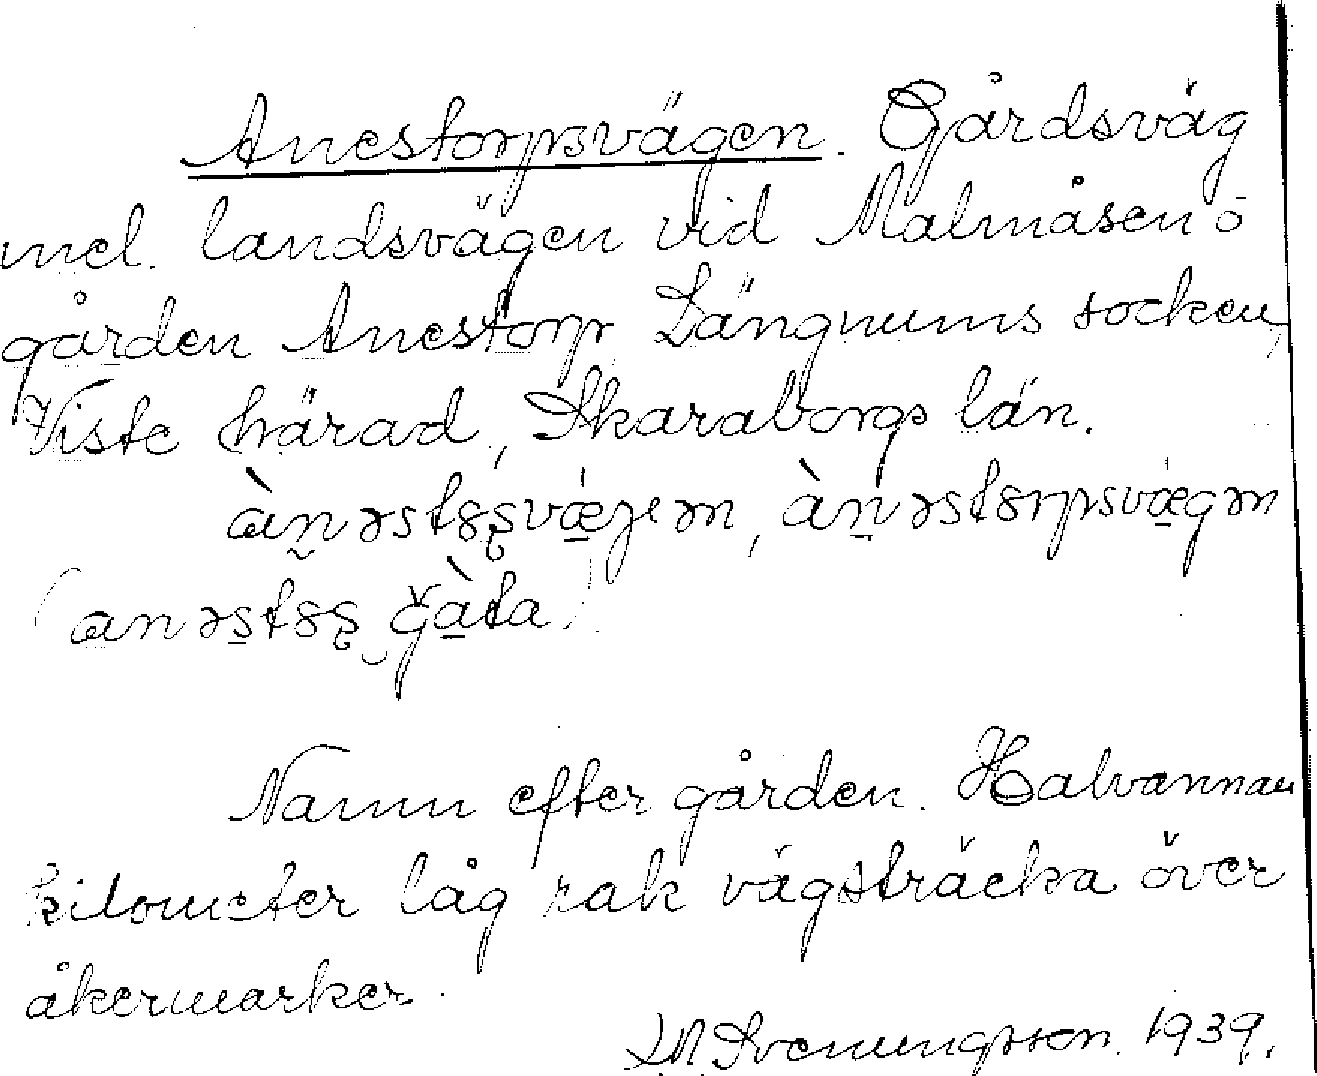 Anestorpsvägen. Gårdsväg
mel. landsvägen vid Malmåsen o
gården Anestorp Längnums socken,
Viste härad, Skaraborgs län.
àn̯əstɞʂvæ̀gen, àn̯əstɞrpsvægən
(anəstɞʂ ğàta)
Namn efter gården. Halvannan
kilometer låg rak vägsträcka över
åkermarker.
Svenungsson. 1939.